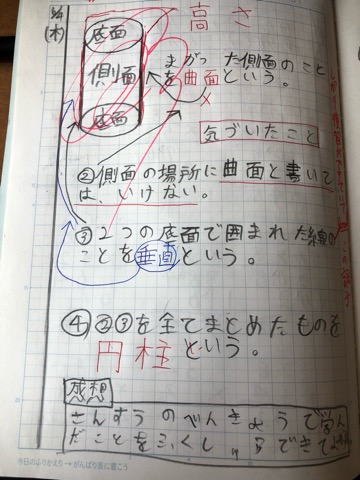 5/14
(木)
底面
側面
底面
高さ
まがった側面のこと
を曲面という。
気づいたこと
②側面の場所に曲面と書いて
は、いけない。
③2つの底面で囲まれた線の
ことを垂直という。
④②③を全てまとめたものを
円柱という。
感想
さんすうのべんきょうで学ん
だことをふくし
できてよ
今日のふりかえり→がんばり表に書こう